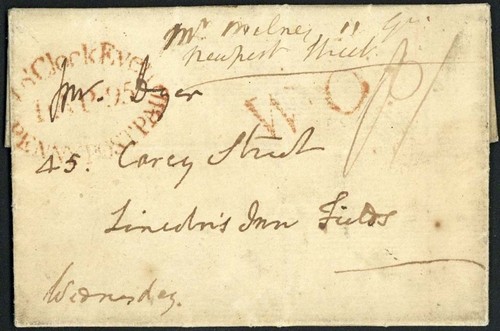 Mr Milnes 11 Gt
Newport Street
o'Clock Eve
95
PENNY POST PAID
W O
Mr Dyer
45. Carey Street
Lincoln's Inn Fields
Wednesday